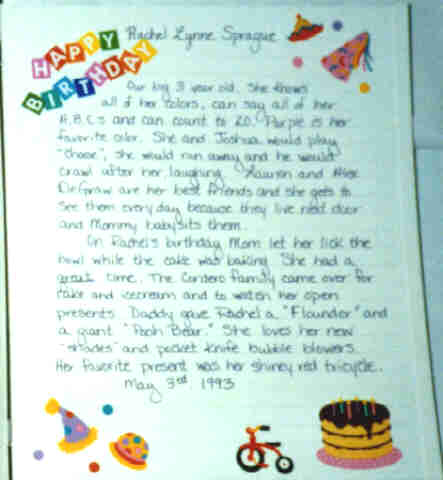 HAPPY BIRTHDAY
Rachel Lynne Sprague
Our big 3 year old. She knows
all of her colors, can say all of her
A.B.C.s and can count to 20. Purple is her
favorite color. She and Joshua would play
"chase", she would run away and he would
crawl after her laughing. Lauren and Alex
DeGraw are her best friends and she gets to
see them every day because they live next door
and Mommy babysits them.
On Rachel's birthday Mom let her lick the
bowl while the cake was baking. She had a
great time. The Cordero family came over for
cake and icecream and to watch her open
presents. Daddy gave Rachel a "Flounder" and
a giant "Pooh Bear." She loves her new
"shades" and pocket knife bubble blowers.
Her favorite present was her shiney red tricycle.
May 3rd 1993